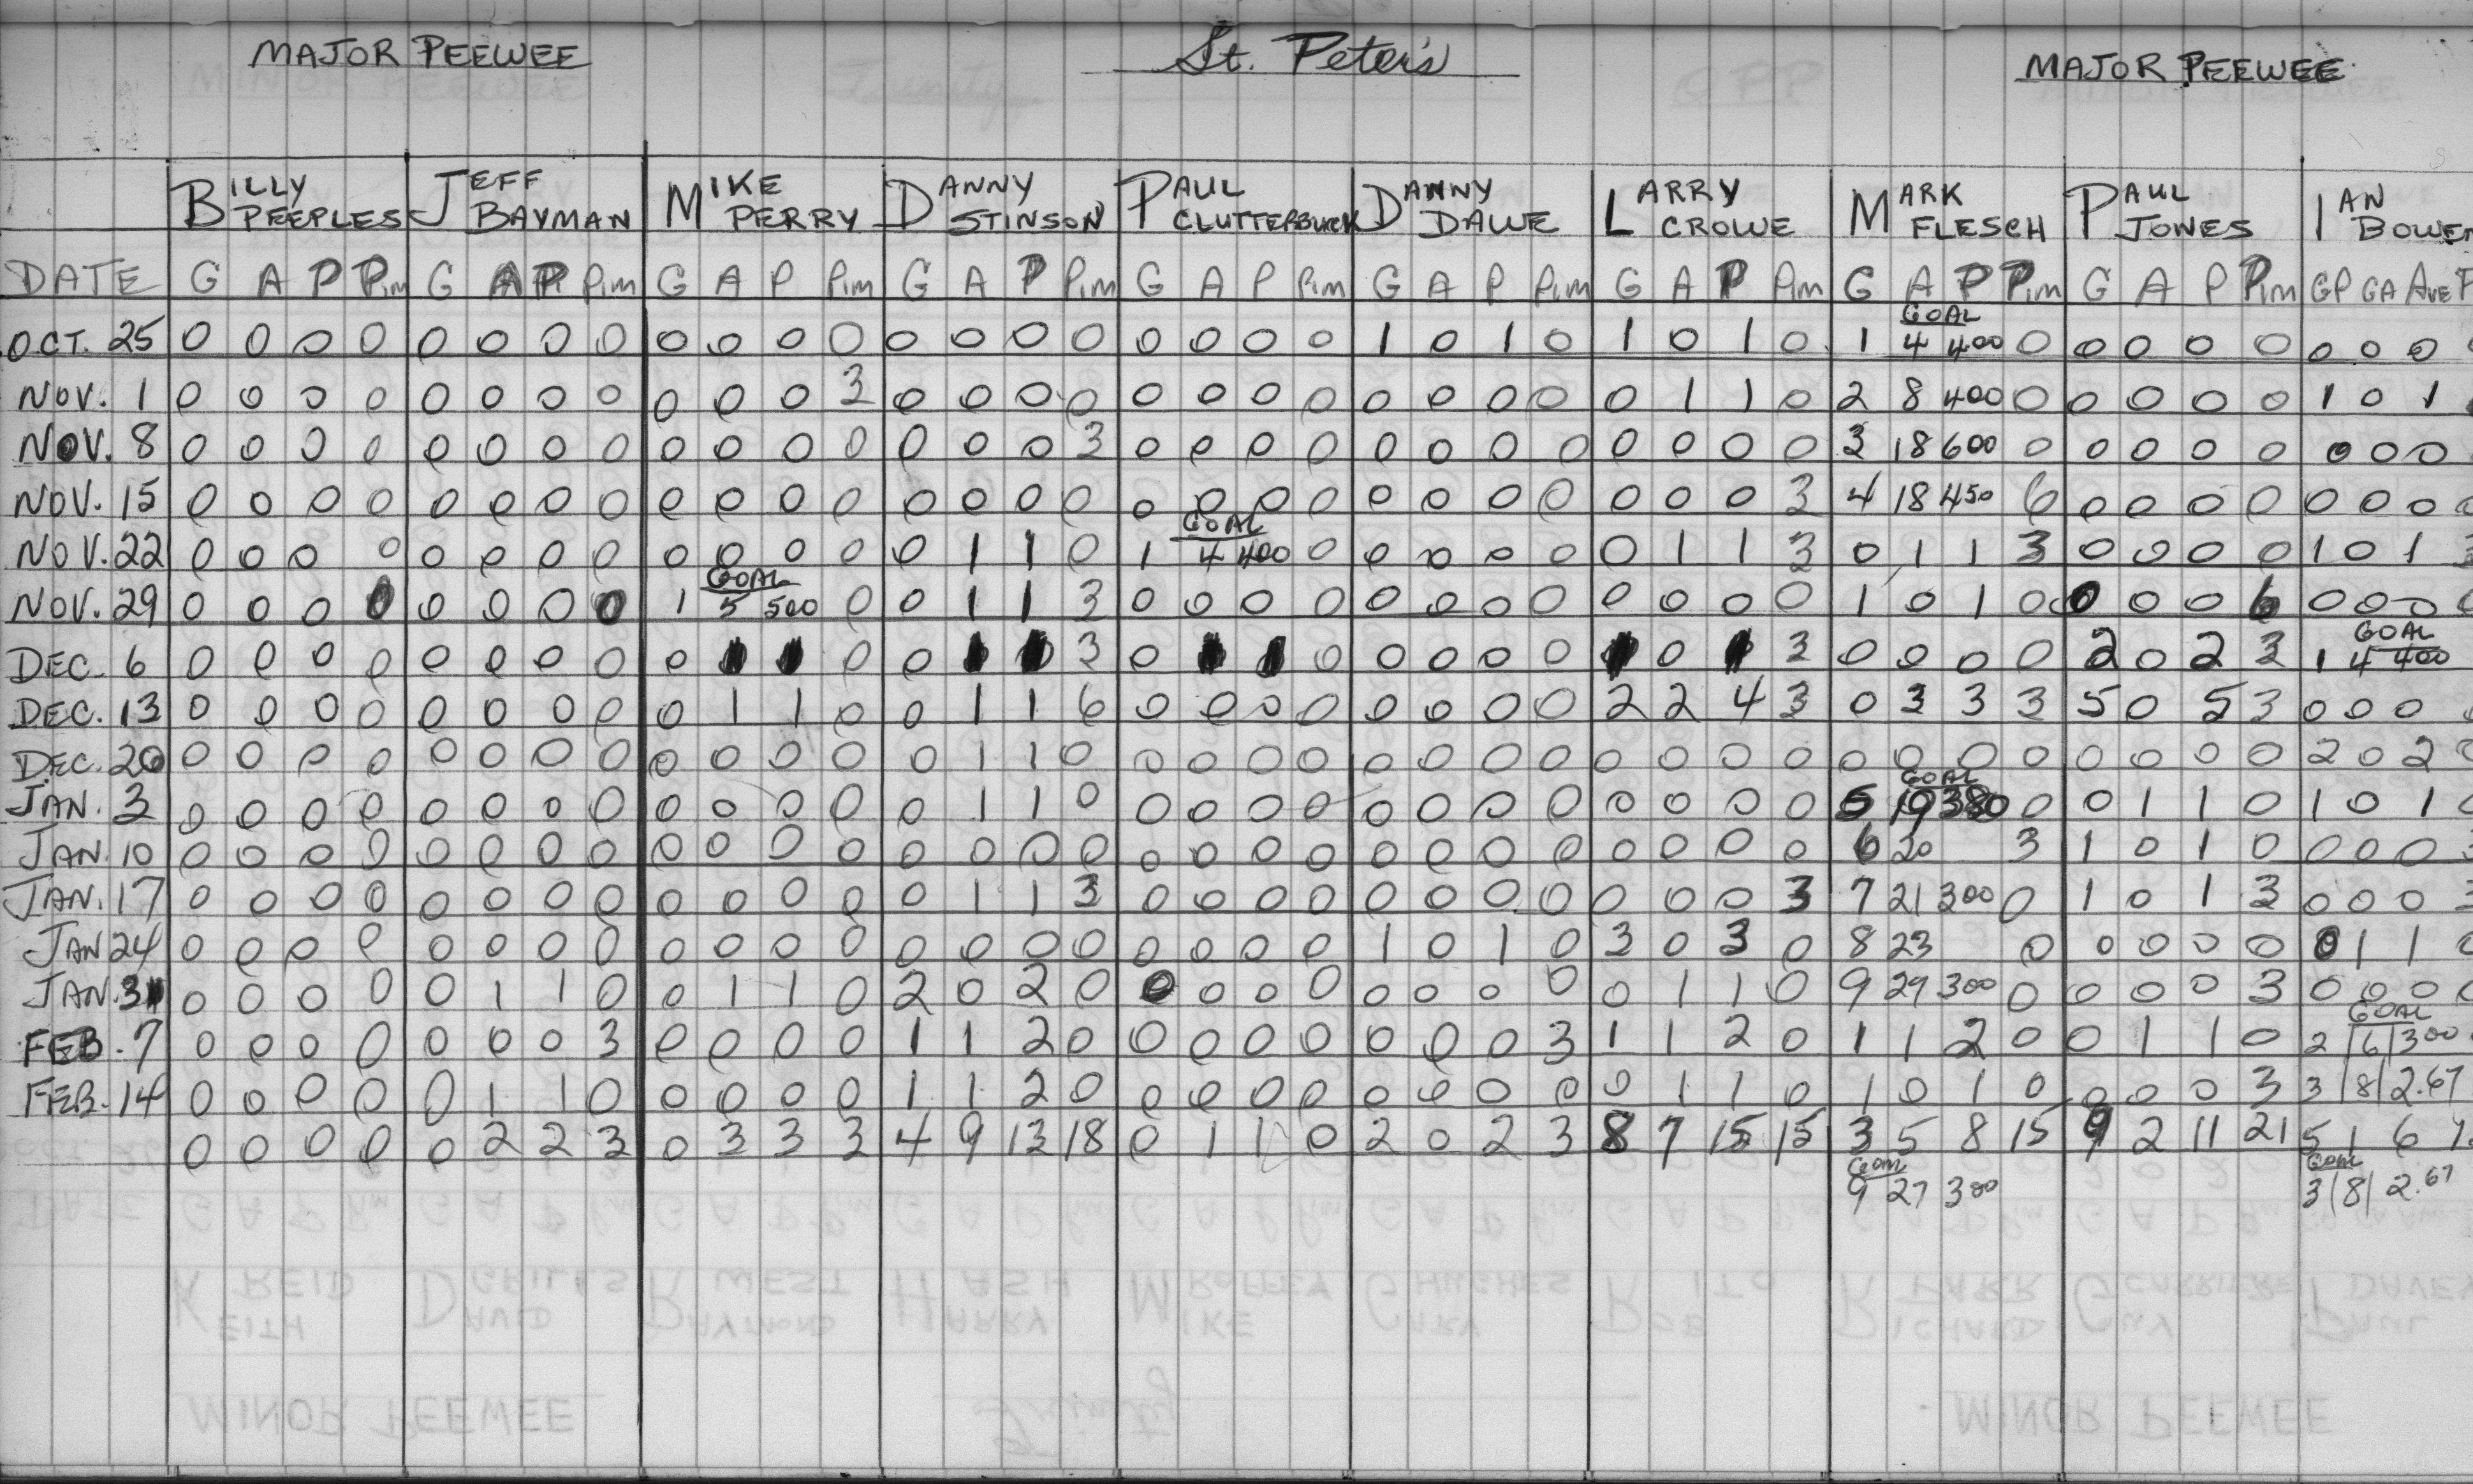 MAJOR PEEWEE St. Peter's MAJOR PEEWEE
BILLY PEEPLES JEFF BAYMAN MIKE PERRY DANNY STINSON PAUL CLUTTERBUCK DANNY DAWE LARRY CROWE MARK FLESCH PAUL JONES IAN BOWEN
DATE G A P Pim G A P Pim G A P Pim G A P Pim G A P Pim G A P Pim G A P Pim G A P Pim G A P Pim GP GA AVE P
OCT. 25 0 0 0 0 0 0 0 0 0 0 0 0 0 0 0 0 0 0 0 0 1 0 1 0 1 0 1 0 1 GOAL 4 400 0 0 0 0 0 0 0 0
NOV. 1 0 0 0 0 0 0 0 0 0 0 0 3 0 0 0 0 0 0 0 0 0 0 0 0 0 1 1 0 2 8 400 0 0 0 0 0 1 0 1
NOV. 8 0 0 0 0 0 0 0 0 0 0 0 0 0 0 0 3 0 0 0 0 0 0 0 0 0 0 0 0 3 18 600 0 0 0 0 0 0 0 0
NOV. 15 0 0 0 0 0 0 0 0 0 0 0 0 0 0 0 0 0 0 0 0 0 0 0 0 0 0 0 3 4 18 450 6 0 0 0 0 0 0 0
NOV. 22 0 0 0 0 0 0 0 0 0 0 0 0 0 1 1 0 1 GOAL 4 400 0 0 0 0 0 0 1 1 3 0 1 1 3 0 0 0 0 1 0 1 3
NOV. 29 0 0 0 0 0 0 0 0 1 GOAL 5 500 0 0 1 1 3 0 0 0 0 0 0 0 0 0 0 0 0 1 0 1 0 0 0 0 6 0 0 0 0
DEC. 6 0 0 0 0 0 0 0 0 0 0 0 3 0 0 0 0 0 0 0 3 0 0 0 0 2 0 2 3 1 GOAL 4 400
DEC. 13 0 0 0 0 0 0 0 0 0 1 1 0 0 1 1 6 0 0 0 0 0 0 0 0 2 2 4 3 0 3 3 3 5 0 5 3 0 0 0
DEC. 20 0 0 0 0 0 0 0 0 0 0 0 0 0 1 1 0 0 0 0 0 0 0 0 0 0 0 0 0 0 0 0 0 0 0 0 0 2 0 2 0
JAN. 3 0 0 0 0 0 0 0 0 0 0 0 0 0 1 1 0 0 0 0 0 0 0 0 0 0 0 0 0 5 GOAL 19 380 0 0 1 1 0 1 0 1 0
JAN. 10 0 0 0 0 0 0 0 0 0 0 0 0 0 0 0 0 0 0 0 0 0 0 0 0 0 0 0 0 6 20 3 1 0 1 0 0 0 0 3
JAN. 17 0 0 0 0 0 0 0 0 0 0 0 0 0 1 1 3 0 0 0 0 0 0 0 0 0 0 0 3 7 21 300 0 1 0 1 3 0 0 0 3
JAN 24 0 0 0 0 0 0 0 0 0 0 0 0 0 0 0 0 0 0 0 0 1 0 1 0 3 0 3 0 8 23 0 0 0 0 0 0 1 1 0
JAN. 31 0 0 0 0 0 1 1 0 0 1 1 0 2 0 2 0 0 0 0 0 0 0 0 0 0 1 1 0 9 27 300 0 0 0 0 3 0 0 0 0
FEB. 7 0 0 0 0 0 0 0 3 0 0 0 0 1 1 2 0 0 0 0 0 0 0 0 3 1 1 2 0 1 1 2 0 0 1 1 0 2 GOAL 6 300
FEB. 14 0 0 0 0 0 1 1 0 0 0 0 0 1 1 2 0 0 0 0 0 0 0 0 0 0 1 1 0 1 0 1 0 0 0 0 3 3 8 2.67
0 0 0 0 0 2 2 3 0 3 3 3 4 9 13 18 0 1 1 0 2 0 2 3 8 7 15 15 3 5 8 15 9 2 11 21 5 1 6
GOAL 9 27 300 GOAL 3 8 2.67